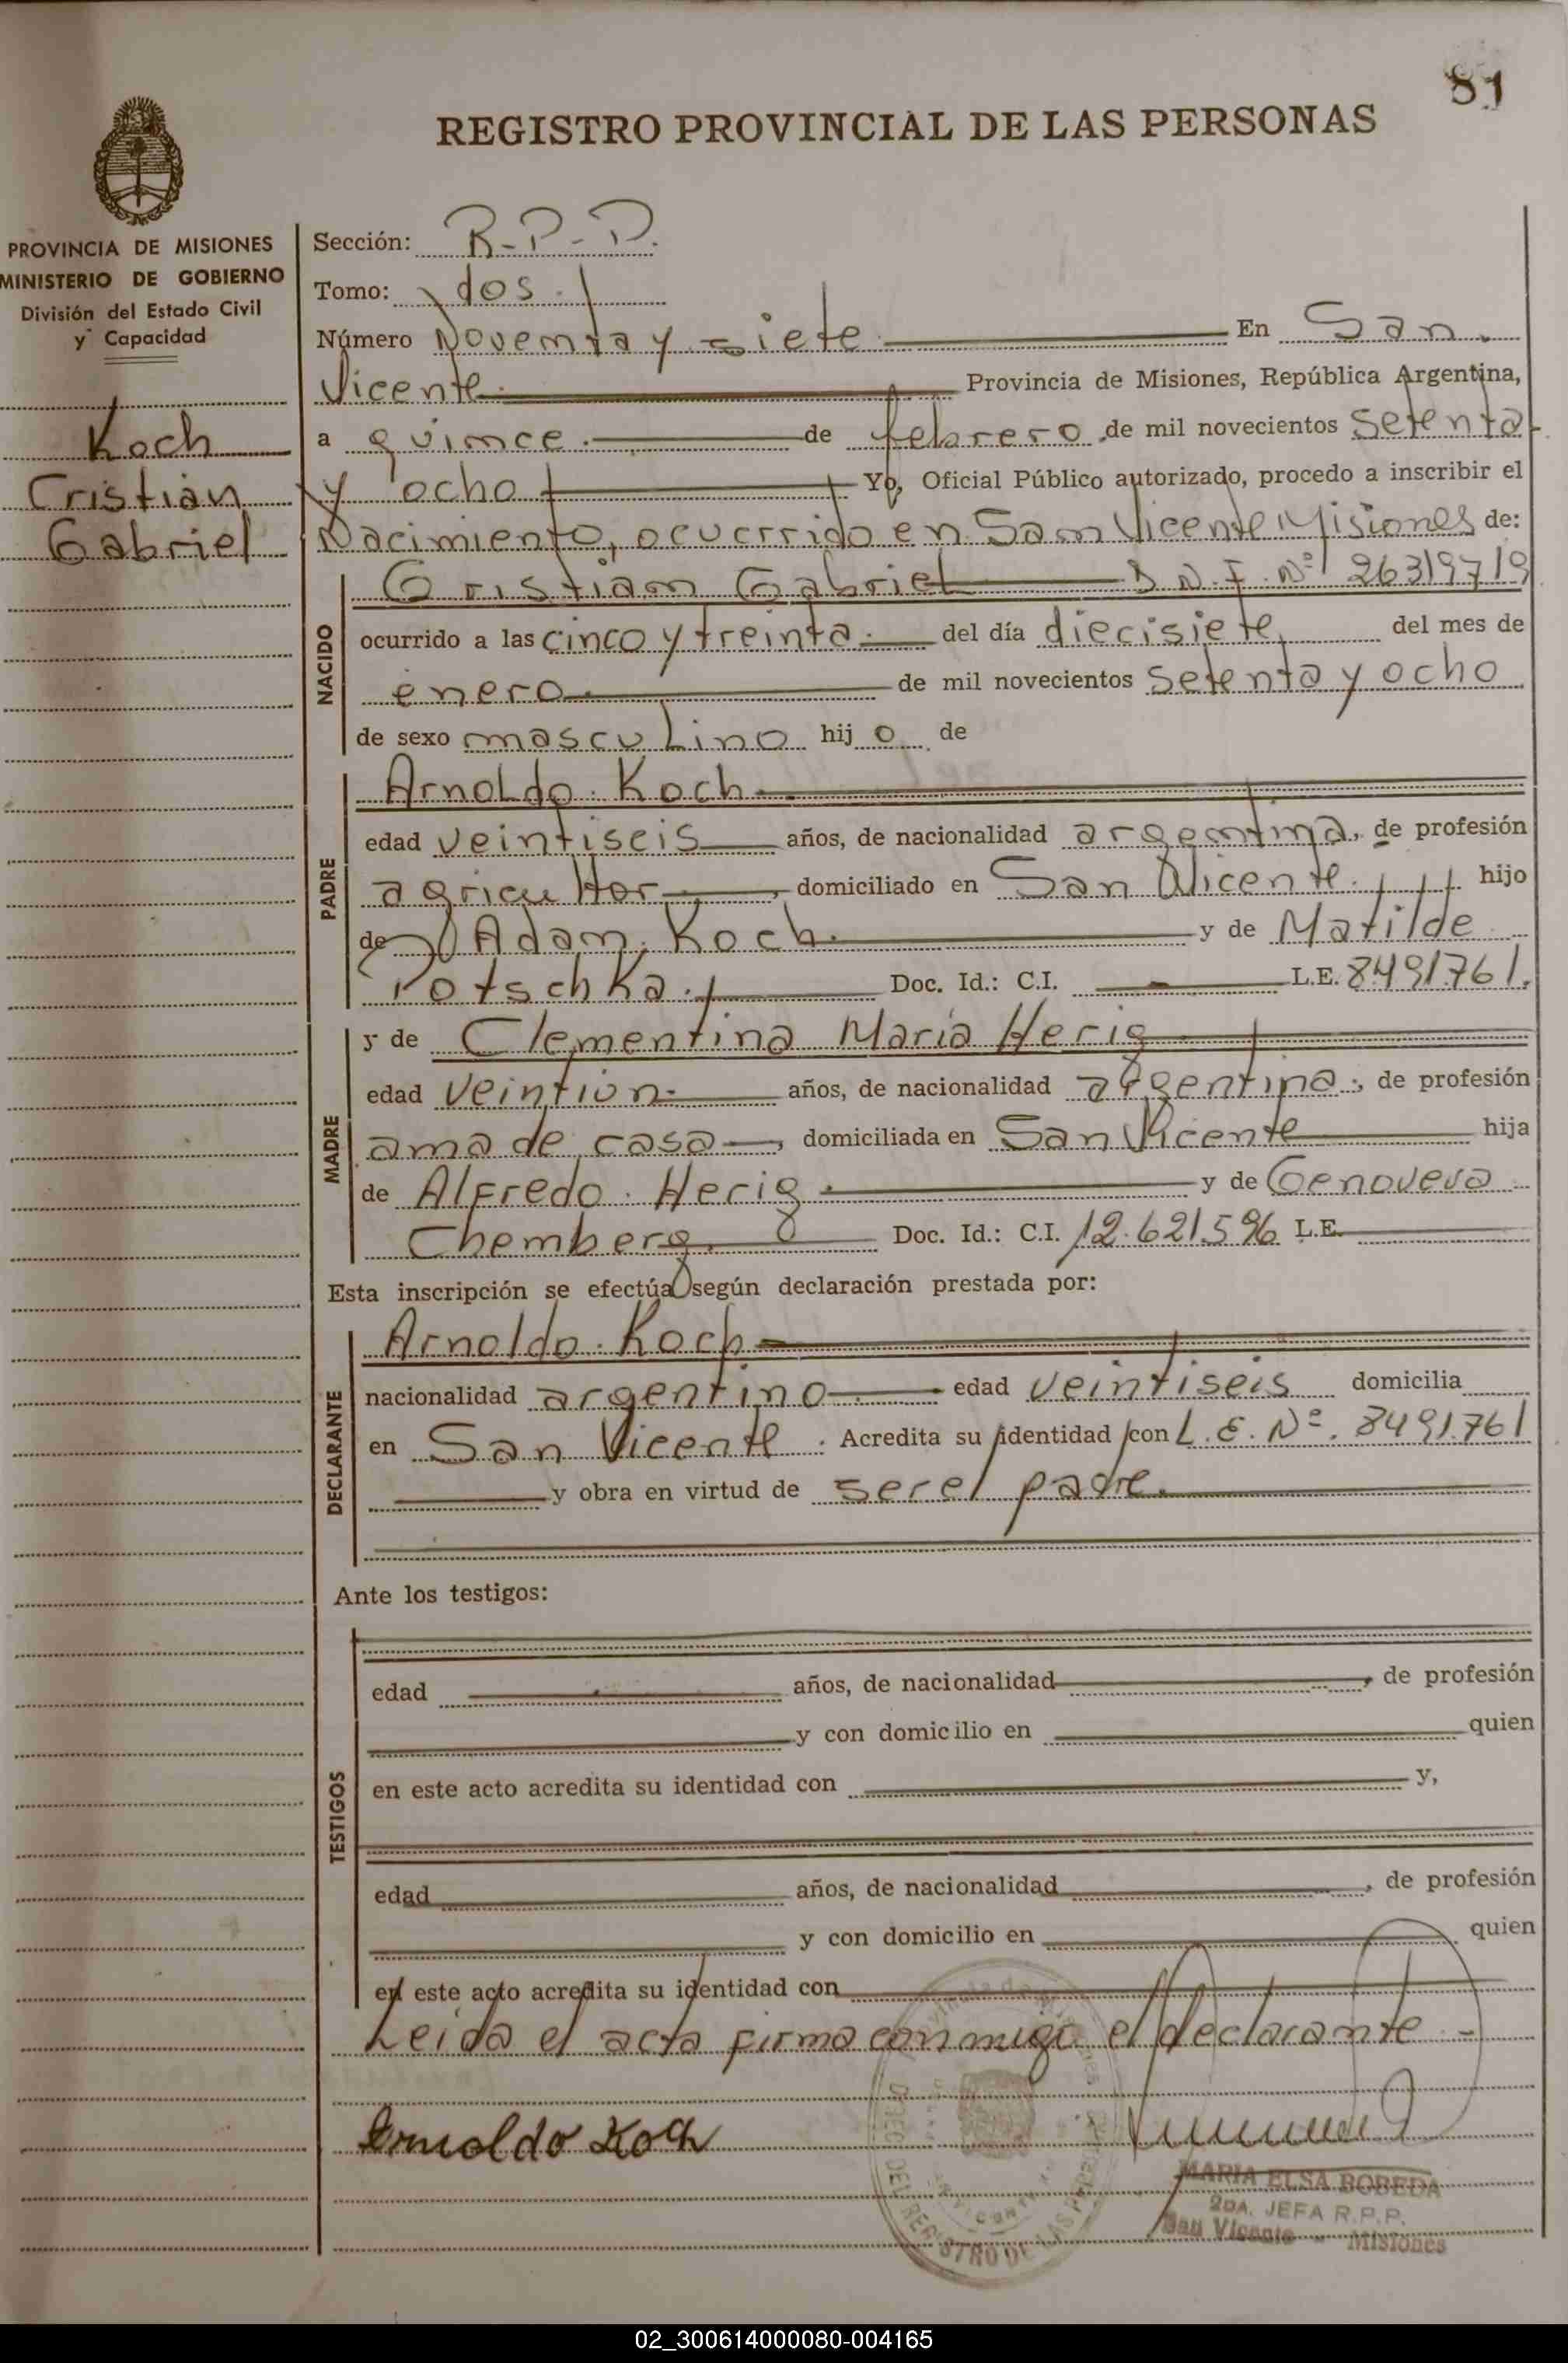 81
REGISTRO PROVINCIAL DE LAS PERSONAS
PROVINCIA DE MISIONES
MINISTERIO DE GOBIERNO
División del Estado Civil
y Capacidad
Koch
Cristian
Gabriel
Sección: R-P-P.
Tomo: dos.
Número Noventa y siete En San
Vicente Provincia de Misiones, República Argentina,
a quince. de febrero de mil novecientos setenta
y ocho Yo, Oficial Público autorizado, procedo a inscribir el
Nacimiento, ocurrido en San Vicente Misiones de:
NACIDO
Cristian Gabriel D.N.I. Nº 26319719
ocurrido a las cinco y treinta. del día diecisiete del mes de
enero. de mil novecientos setenta y ocho
de sexo masculino hijo de
PADRE
Arnoldo Koch
edad veintiseis años, de nacionalidad argentina, de profesión
agricultor, domiciliado en San Vicente. hijo
de Adam Koch. y de Matilde
Potschka. Doc. Id.: C.I. L.E. 8491761.
MADRE
y de Clementina María Herig
edad veintiun. años, de nacionalidad argentina, de profesión
ama de casa, domiciliada en San Vicente hija
de Alfredo Herig. y de Genoveva
Chemberg. Doc. Id.: C.I. 12.621.596 L.E.
Esta inscripción se efectúa según declaración prestada por:
DECLARANTE
Arnoldo Koch
nacionalidad argentino edad veintiseis domicilia
en San Vicente. Acredita su identidad con L.E. Nº. 8491761
y obra en virtud de ser el padre.
Ante los testigos:
TESTIGOS
edad años, de nacionalidad , de profesión
y con domicilio en quien
en este acto acredita su identidad con y,
edad años, de nacionalidad , de profesión
y con domicilio en quien
en este acto acredita su identidad con
Leida el acta firma conmigo el declarante -
Arnoldo Koch
MARIA ELSA BOBEDA
2DA. JEFA R.P.P.
San Vicente - Misiones
02_300614000080-004165